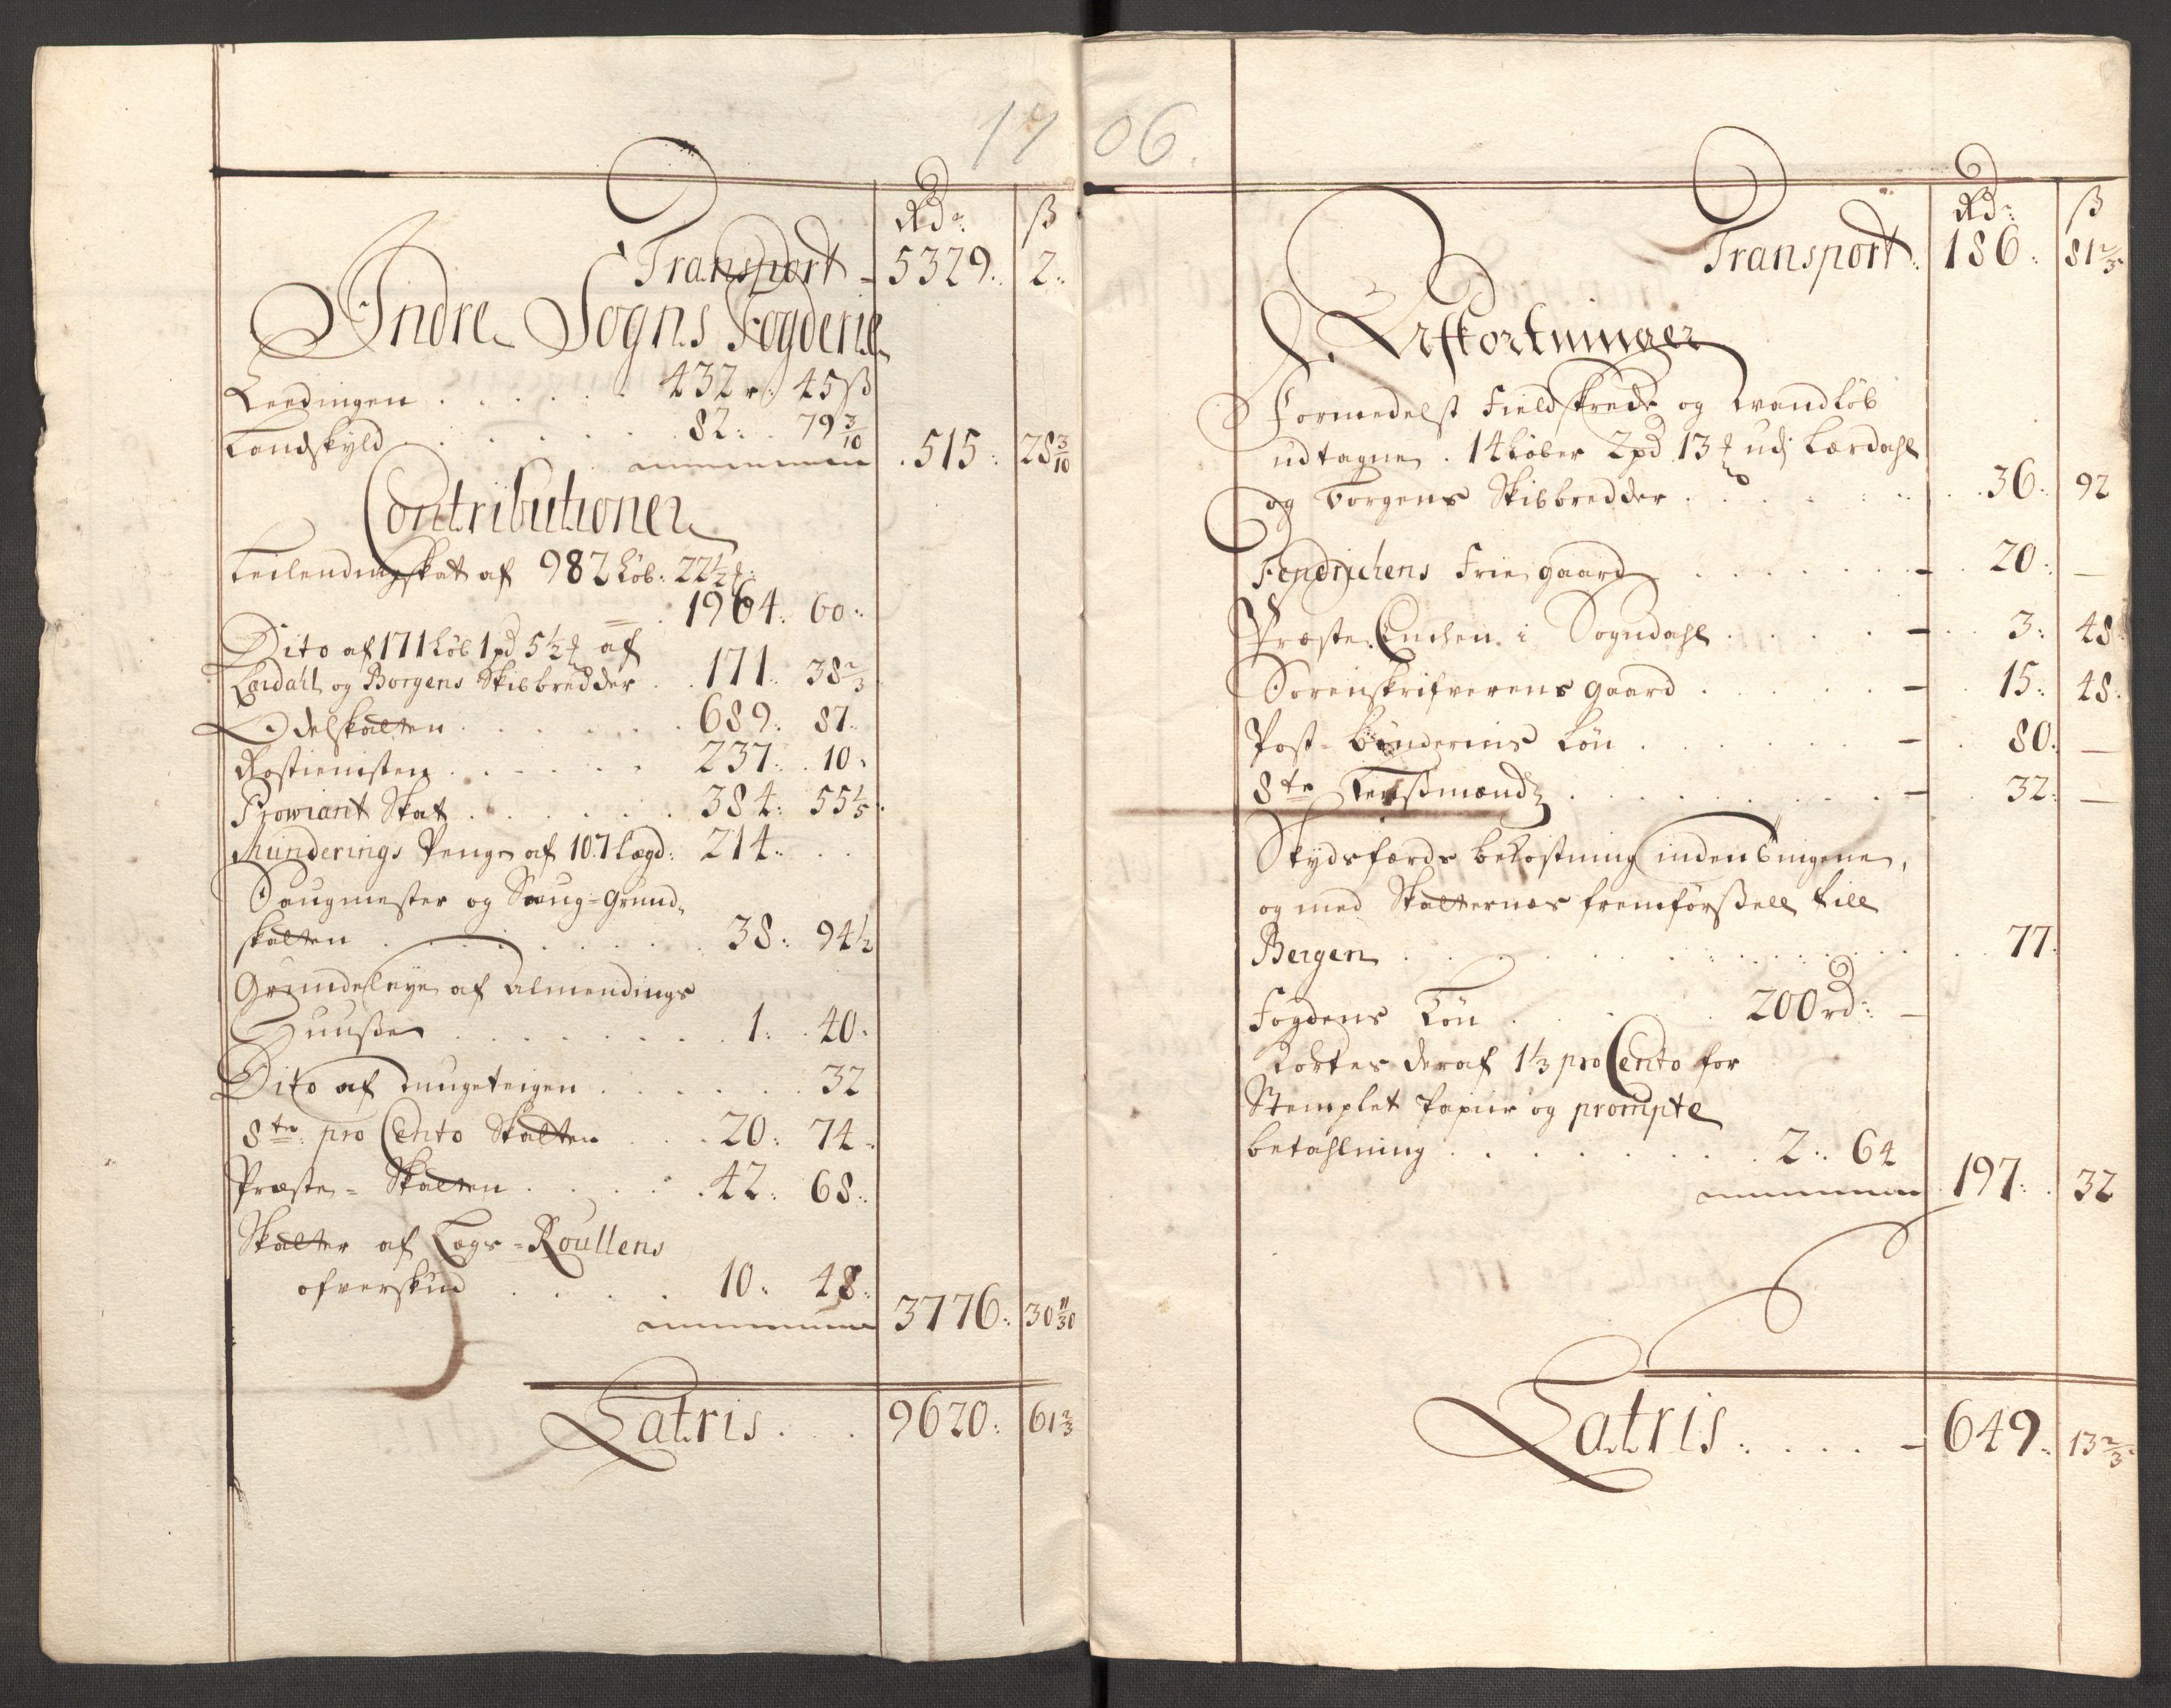 1706.
Rdr: ß
Transport - 5329: 2:
Indre Sogns Fogderie
Leedingen . . . . . . 432 r: 45 ß
Landskyld . . . . . . 82: 79 3/10
515: 28 3/10
Contributioner
Leilendingskat af 982 Løb: 22 1/2
1964: 60:
Dito af 171 Løb 1 pd 5 1/2 af
Lærdahl og Borgens Skibbredder . 171: 38 2/3
Odelskatten . . . . . . 689: 87:
Rostienisten . . . . . . 237: 10:
Proviant Skat . . . . . . 384: 55 1/5:
Munderings Penge af 107 Lægd: 214: . .
Saugmester og Saug-Grund-
skatten . . . . . . 38: 94 1/2
Grundeleye af Almendings
Huußer . . . . . . 1: 40:
Dito af Tungeteigen . . . . . 32
8te: pro Cento Skatten . . . 20: 74:
Præste-Skatten . . . . . 42: 68:
Skatter af Lags-Roullens
ofverskud . . . . 10: 48:
3776: 30 11/30
Latris . . . 9620: 61 2/3
Rdr: ß
Transport: 186: 81 2/3
Afkortninger
Formedelst Fieldskrede og Wandløb
udtagne 14 Løber 2 pd 13 udj Lærdahl
og Borgens Skibbredder . . . . . . 36: 92
Fendrichens Frie gaard . . . . . - 20: —
Præste Enchen i Sogndahl . . . . - 3: 48:
Sorenskrifverens gaard . . . . . - 15: 48:
Post-bønderens Løn . . . . . - 80: —
8te Lensmænd . . . . . . - 32: —
Skydsfærds bekostning inden bøigene,
og med Skatternes fremførßell till
Bergen . . . . . . . . . . 77:
Fogdens Løn . . . . . 200 rd: -
Kortes deraf 1 1/3 pro Cento for
Stemplet Papiir og prompte
betahlning . . . . . . . 2: 64
197: 32
Latris: . . . . - 649: 13 2/3